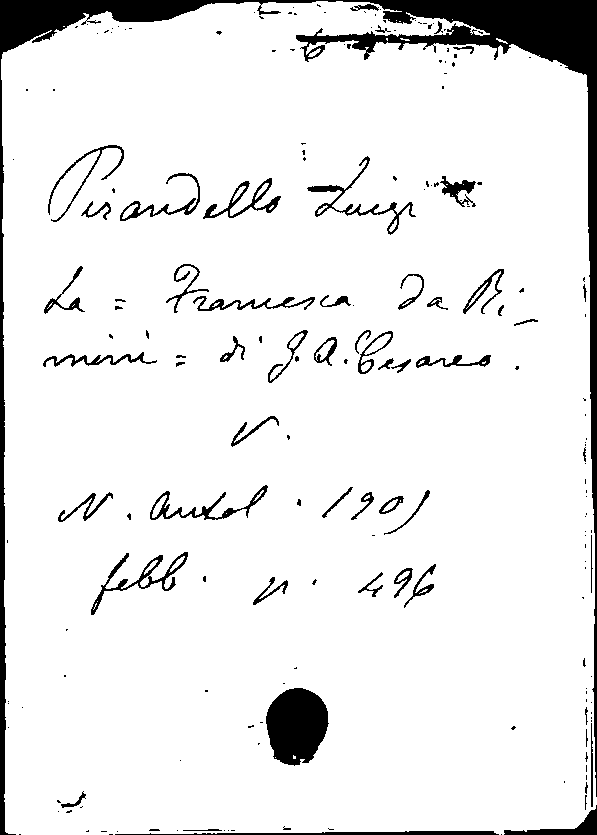 Pirandello Luigi
La = Francesca da Ri-
mini = di G. A. Cesareo.
V.
N. Antol. 1905
febb. p. 496